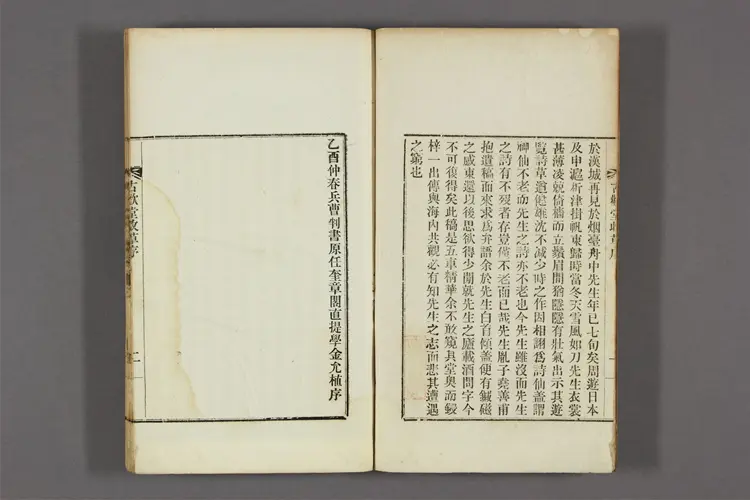 於漢城再見於烟臺舟中先生年已七旬矣周遊日本
及申滬析津掛帆東歸時當冬天雪風如刀先生衣裳
甚薄凌兢倚檣而立鬚眉間猶隱隱有壯氣出示其遊
覽詩草遒健雄沈不減少時之作因相謂爲詩仙蓋謂
神仙不老而先生之詩亦不老也今先生雖沒而先生
之詩有不裂者存豈僅不老而已哉先生胤子堯善甫
抱遺稿而來求爲弁語余於先生白首傾蓋便有鍼磁
之感東還以後思欲得少閒就先生之廬載酒問字今
不可復得矣此稿是五車精華余不敢窺其堂奧而鋟
梓一出傳與海內共觀必有知先生之志而悲其遭遇
之窮也
古歡堂收草序
一
乙酉仲春兵曹判書原任奎章閣直提學金允植序
古歡堂收草序
二